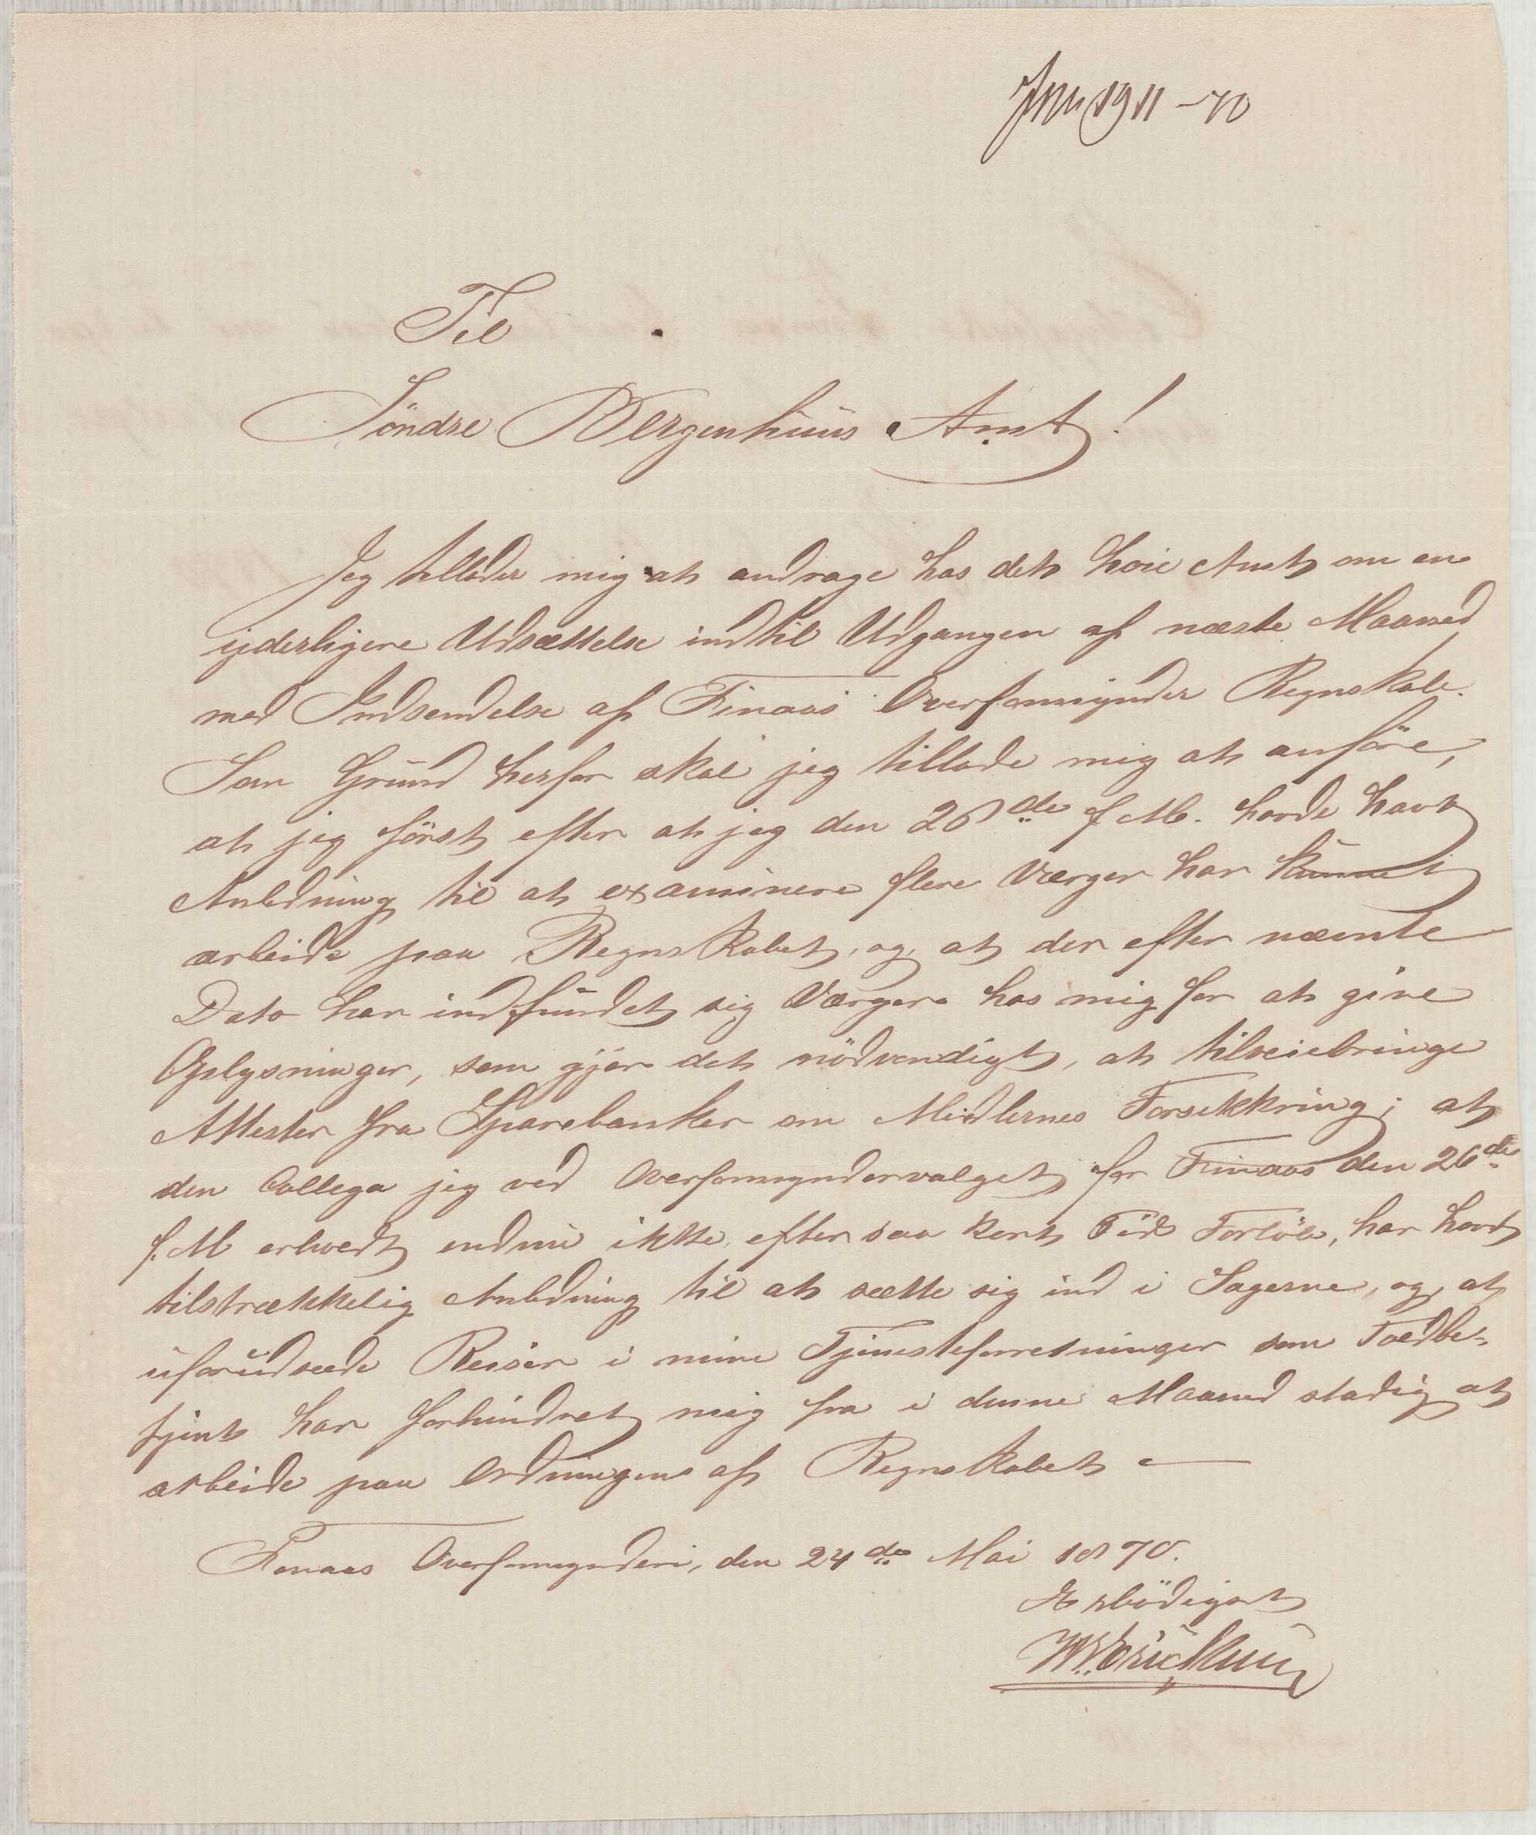 JNr 1911-70
Til
Söndre Bergenhuus Amt!
Jeg tillader mig at andrage hos det høie Amt om en
yderligere Udsættelse indtil Udgangen af næste Maaned
med Indsendelse af Finaas Overformynder Regnskab.
Som Grund herfor skal jeg tillade mig at anföre,
at jeg först efter at jeg den 26de f. M. havde havt
Anledning til at examinere flere Værger har kunnet
arbeide paa Regnskabet, og at der efter nævnte
Dato har indfundet sig Værger hos mig for at give
Oplysninger, som gjør det nödvendigt, at tilveiebringe
Attester fra Sparebanker om Midlernes Forsikkring; at
den Collega jeg ved Overformyndervalget for Finaas den 26de
f. M erhvedt endnu ikke, efter saa kort Tids Forlöb, har havt
tilstrækkelig Anledning til at sætte sig ind i Sagerne, og, at
uforudseede Reiser i mine Tjenesteforretninger som Toldbe-
tjent har forhindret mig fra i denne Maaned stadig at
arbeide paa Ordningen af Regnskabet –
Finaas Overformynderi, den 24de Mai 1870.
Erbödigst